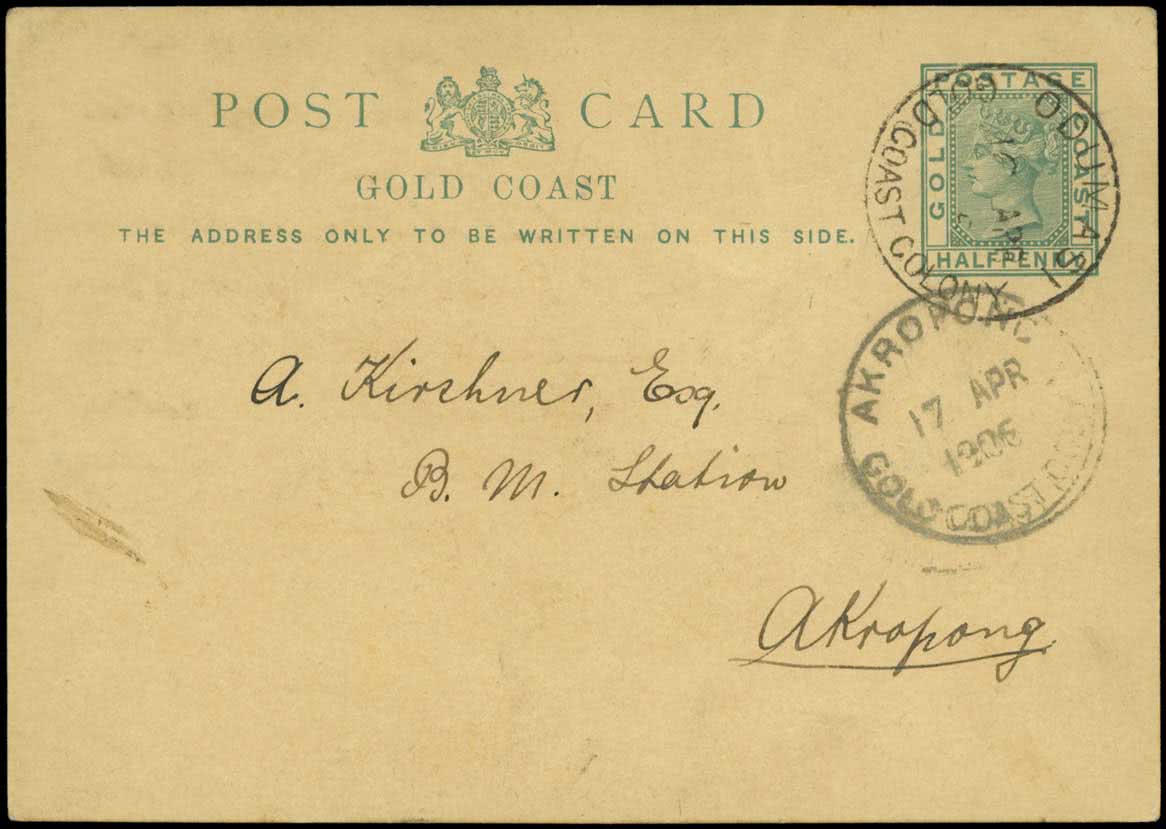 POST CARD
GOLD COAST
THE ADDRESS ONLY TO BE WRITTEN ON THIS SIDE.
POSTAGE
GOLD COAST
HALFPENNY
ODUMASI
APR
GOLD COAST COLONY
AKROPONG
17 APR
1906
GOLD COAST COLONY
A. Kirshner, Esq.
B. M. Station
Akropong